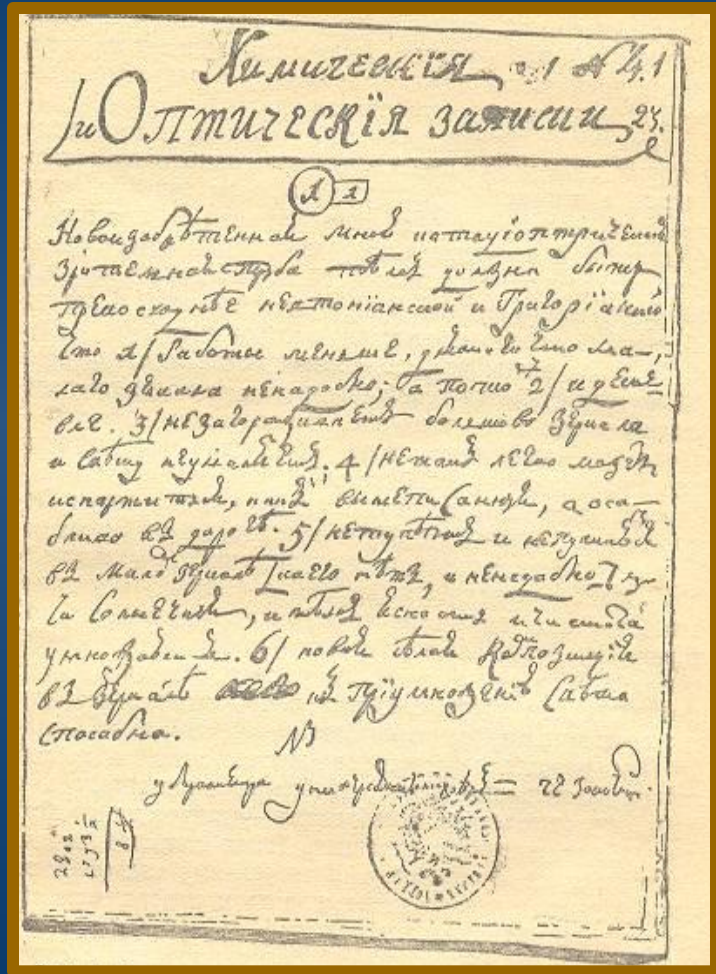 Химическія
и Оптическія записки
1
Новоизобрѣтенная мною катадіоптрическая
зрительная труба тѣмъ должна быть
превосходнѣе невтоніанской и Григоріанской
что 1/ Работы меньше, для того что ма-
лаго зеркала ненадобно; а потому 2/ и дешев
вле. 3/ незагораживаетъ большово зеркала
и свѣту неумаляетъ. 4/ не такъ легко можетъ
испортиться, какъ вышеписанныя, а осо-
бливо въ дорогѣ. 5/ нетупѣютъ и непутаются
въ маломъ зеркалѣ [коего нѣтъ, и ненадобно] лу-
чи солнечные, и тѣмъ ясность и чистота
умножаются. 6/ новая бѣлая композиція
въ зеркалѣ къ пріумноженію свѣта
способна.